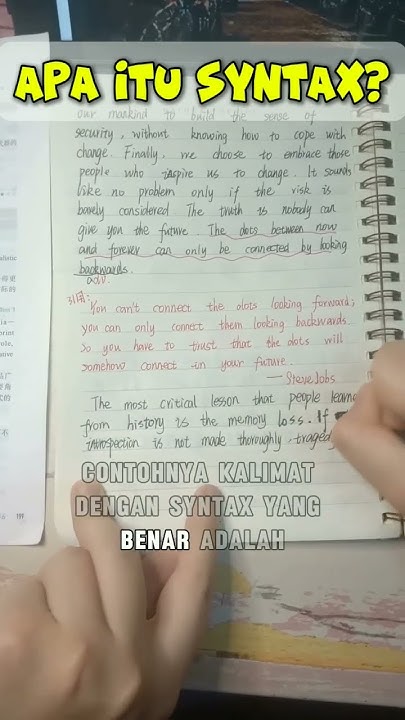 APA ITU SYNTAX?
our mankind to build the sense of
security, without knowing how to cope with
change. Finally, we choose to embrace those
people who inspire us to change. It sounds
like no problem only if the risk is
barely considered. The truth is nobody can
give you the future. The dots between now
and forever can only be connected by looking
backwards.
adv.
引用:
You can't connect the dots looking forward;
you can only connect them looking backwards.
so you have to trust that the dots will
somehow connect in your future.
— Steve Jobs
The most critical lesson that people learne
from history is the memory loss. If
introspection is not made thoroughly, traged
CONTOHNYA KALIMAT
DENGAN SYNTAX YANG
BENAR ADALAH
199